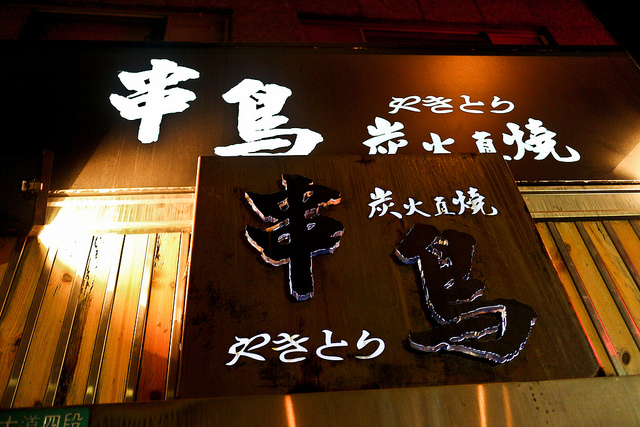 串鳥
やきとり
炭火直燒
串鳥
炭火直燒
やきとり
大道四段